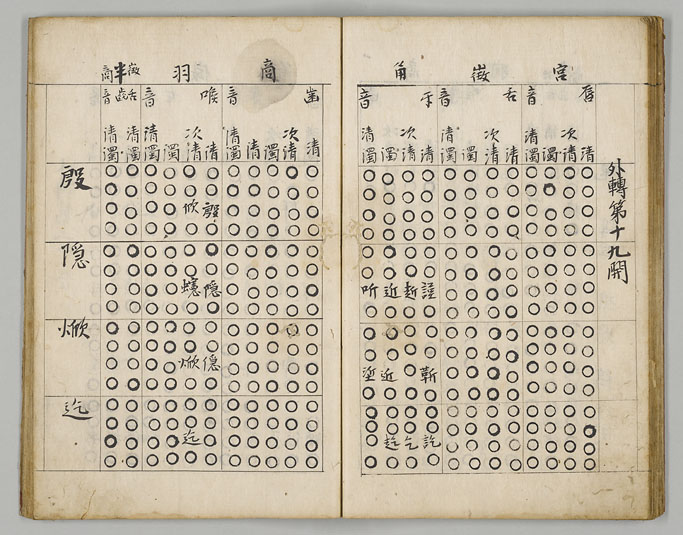 外轉第十九開
宮 徴 角
脣 音 舌 音 牙 音
清 次清 濁 清濁 清 次清 濁 清濁 清 次清 濁 清濁
謹 近 听
靳 近 垽
訖 乞
商 羽 半徴商
齒 音 喉 音 舌齒音
清 次清 濁 清 濁 清 次清 濁 清濁 清濁 清濁
殷 欣 殷
隠 隠
焮 焮
迄 迄